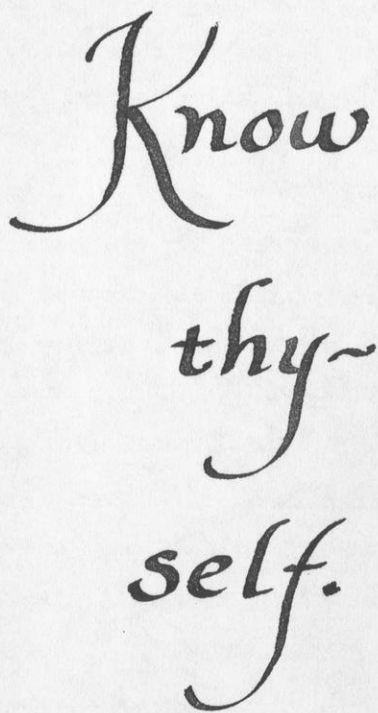 Know
thy~
self.